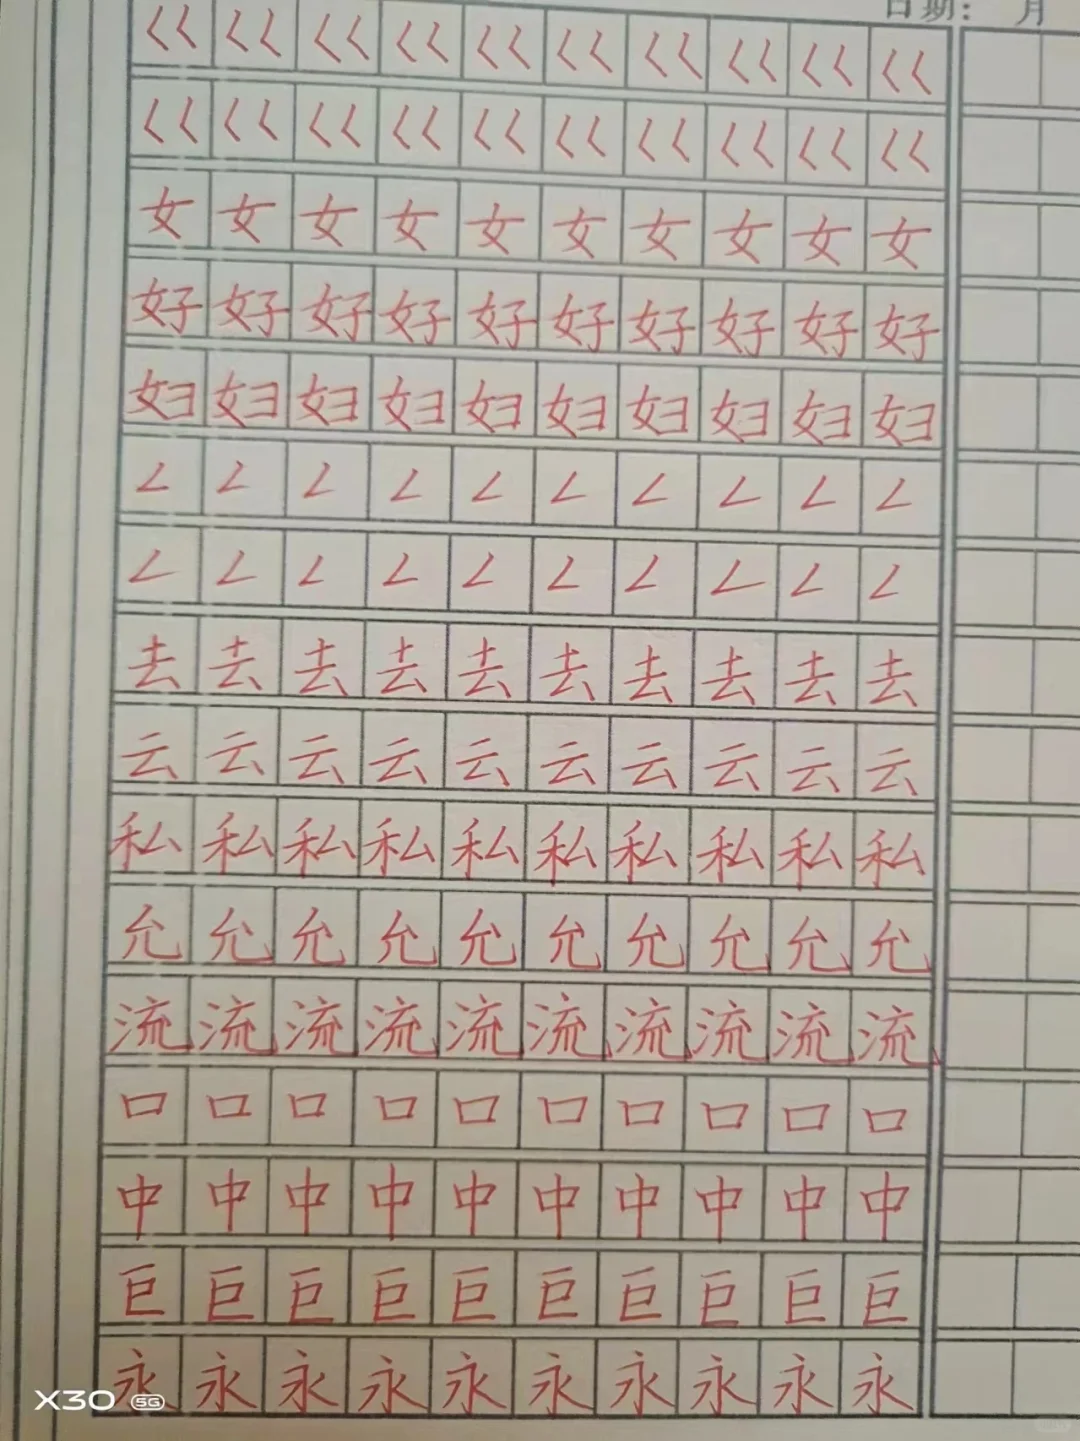 日期： 月
く く く く く く く く く く く く く く く く く く く く
く く く く く く く く く く く く く く く く く く く く
女 女 女 女 女 女 女 女 女 女
好 好 好 好 好 好 好 好 好 好
妇 妇 妇 妇 妇 妇 妇 妇 妇 妇
㇜ ㇜ ㇜ ㇜ ㇜ ㇜ ㇜ ㇜ ㇜ ㇜
㇜ ㇜ ㇜ ㇜ ㇜ ㇜ ㇜ ㇜ ㇜ ㇜
去 去 去 去 去 去 去 去 去 去
云 云 云 云 云 云 云 云 云 云
私 私 私 私 私 私 私 私 私 私
允 允 允 允 允 允 允 允 允 允
流 流 流 流 流 流 流 流 流 流
口 口 口 口 口 口 口 口 口 口
中 中 中 中 中 中 中 中 中 中
巨 巨 巨 巨 巨 巨 巨 巨 巨 巨
永 永 永 永 永 永 永 永 永 永
X30 5G